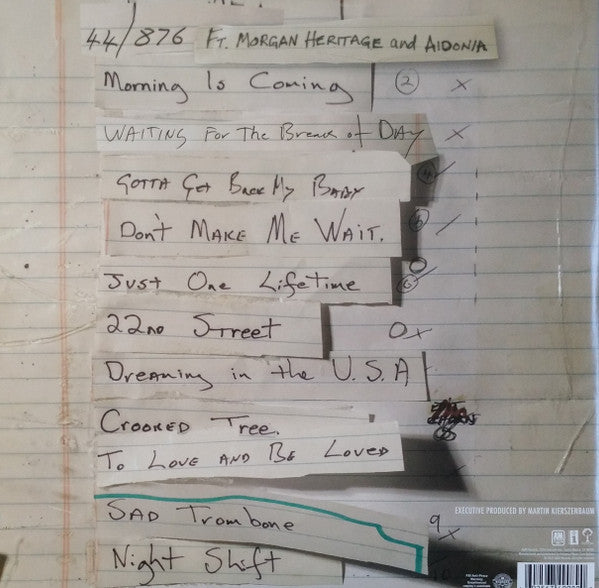 44/876 FT. MORGAN HERITAGE and AIDONIA
Morning Is Coming 2 x
WAITING For The Break of DAY x
GOTTA Get Back My BABY
Don't MAKE ME WAIT.
Just One Lifetime
22ND Street 0x
Dreaming in the U.S.A
Crooked Tree.
To LOVE AND BE Loved
EXECUTIVE PRODUCED BY MARTIN KIERSZENBAUM
SAD Trombone 9 x
Night Shift